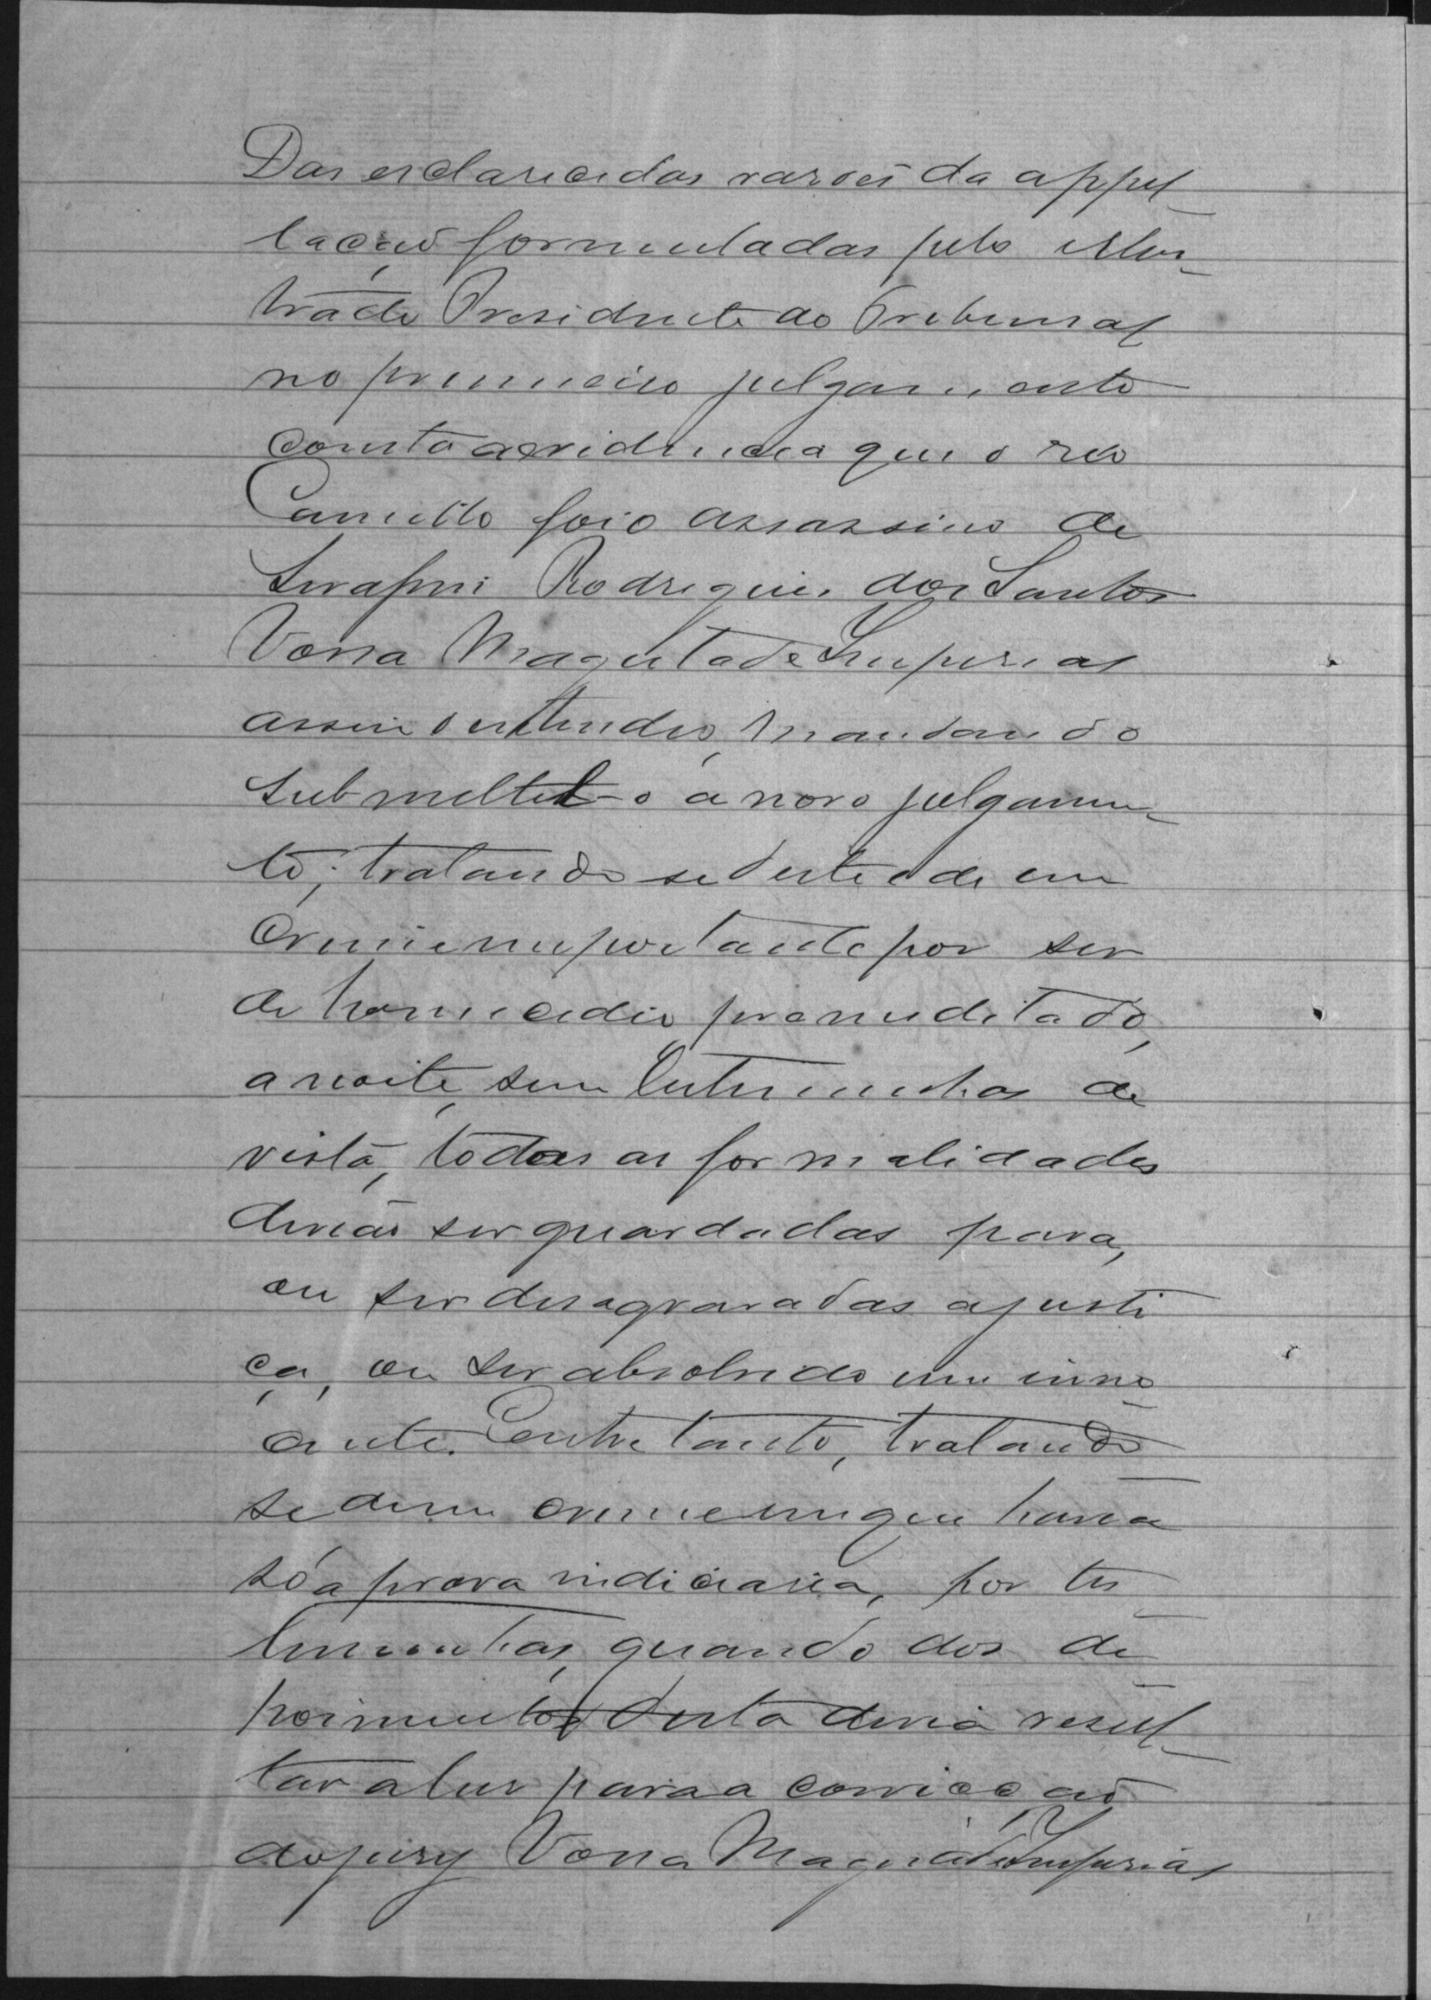 Das esclarecidas rasões da appel-
lação formuladas pelo illus-
trado Presidente do Tribunal
no primeiro julgamento
consta a evidencia que o réo
Camillo foi o assassino de
Serafim Rodrigues dos Santos
Vossa Magestade Imperial
assim o entendeo, mandando
submettel-o a novo julgamen-
to; tratando se d'este e de um
crime importante por ser
de homicidio premeditado,
a noite, sem testemunhas de
vista, todas as formalidades
devião ser guardadas para,
ou ser desagravadas a justi
ça, ou ser absolvido um inno-
cente. Entretanto, tratando
se de um crime em que havia
só a prova indiciaria, por tes-
temunhas, quando dos de-
poimentos d'esta devia resul-
tar a luz para a convicção
do jury Vossa Magestade Imperial